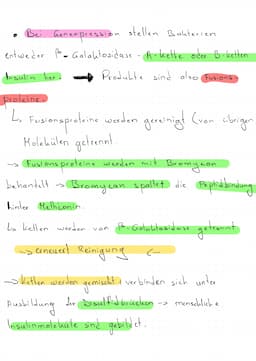 • Bei Genexpression stellen Bakterien
entweder β-Galaktosidase - A-Kette oder B-Ketten
Insulin her. → Produkte sind also Fusions-
proteine.
↳ Fusionsproteine werden gereinigt (von übrigen
Molekülen getrennt.
→ Fusionsproteine werden mit Bromcyan
behandelt → Bromcyan spaltet die Peptidbindung
hinter Methionin.
↳ Ketten werden von β-Galaktosidase getrennt
→ erneuert Reinigung ←
→ Ketten werden gemischt & verbinden sich unter
Ausbildung der Disulfidbrücken → menschliche
Insulinmoleküle sind gebildet.